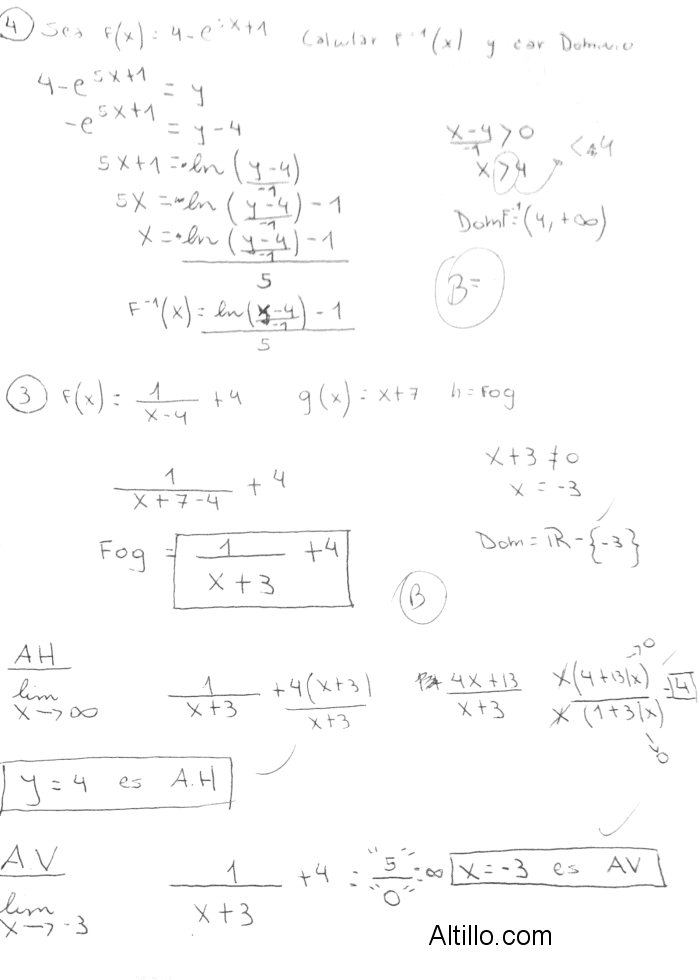 ④ Sea F(x) = 4-e^5x+1 Calcular F^-1(x) y dar Dominio
4-e^5x+1 = y
-e^5x+1 = y-4
5x+1 = ln((y-4)/-1)
5x = ln((y-4)/-1) - 1
x = (ln((y-4)/-1) - 1)/5
F^-1(x) = (ln((x-4)/-1) - 1)/5
(x-4)/-1 > 0
x > 4 <4
DomF^-1 (4, +∞)
B-
③ F(x) = 1/(x-4) + 4 g(x) = x+7 h = Fog
1/(x+7-4) + 4
Fog = 1/(x+3) + 4
x+3 ≠ 0
x = -3
Dom = R - {-3}
B
AH
lim x→∞ 1/(x+3) + 4(x+3)/(x+3) (4x+13)/(x+3) x(4+13/x)/x(1+3/x) = 4
→0
→0
y = 4 es A.H
A.V
lim x→-3 1/(x+3) + 4 = "5"/"0" = ∞ x = -3 es AV
Altillo.com